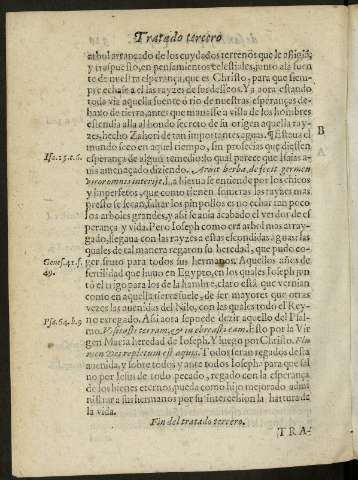 Tratado tercero
arbol arrancado de los cuydados terrenos que le afligiã,
y traspuesto, en pensamientos celestiales, junto a la fuen
te de nuestra esperança, que es Christo, para que siem-
pre echase a el las rayzes de sus desseos. Y a aora estando
toda via aquella fuente o rio de nuestras esperanças de-
baxo de tierra, antes que manasse a vista de los hombres
estendia alla al hondo secreto de su origen aquella ray-
zes, hecho Zahori de tan importantes aguas. Estaua el
B
mundo seco en aquel tiempo, sin profecias que diessen
Isa. 15. c. 6.
esperança de algun remedio: lo qual parece que Isaias a-
uia amenaçado diziendo. Aruit herba, defecit germen
viror omnis interijt. La hierua se entiende por los chicos
y imperfetos, que como tienen someras las rayzes mas
presto se secan, faltar los pinpollos es no echar tan poco
los arboles grandes, y assi se auia acabado el verdor de es
perança y vida. Pero Ioseph como era arbol mas array-
gado, llegaua con las rayzes a estas escondidas aguas: las
quales de tal manera regaron su heredad, que pudo co-
Genes. 41. f.
49.
ger fruto para todos sus hermanos. Aquellos años de
fertilidad que huuo en Egypto, en los quales Ioseph jun
tó el trigo para los de la hambre, claro està que vernian
como en aquella tierra suele, de ser mayores que otras
vezes las auenidas del Nilo, con las quales todo el Rey-
no es regado. Assi aora se puede dezir aquello del Psal-
Psa. 64. b. 9
mo. Visitasti terram, & inebriasti eam. Esto por la Vir
gen Maria heredad de Ioseph. Y luego por Christo. Flu
men Dei repletum est aquis. Todos seran regados desta
auenida, y sobre todos y ante todos Ioseph: para que sal
no por Iesus de todo pecado, regado con la esperança
de los bienes eternos, pueda como hijo mejorado admi
nistrar a sus hermanos por su intercession la hartura de
la vida.
Fin del tratado tercero.
TRA-